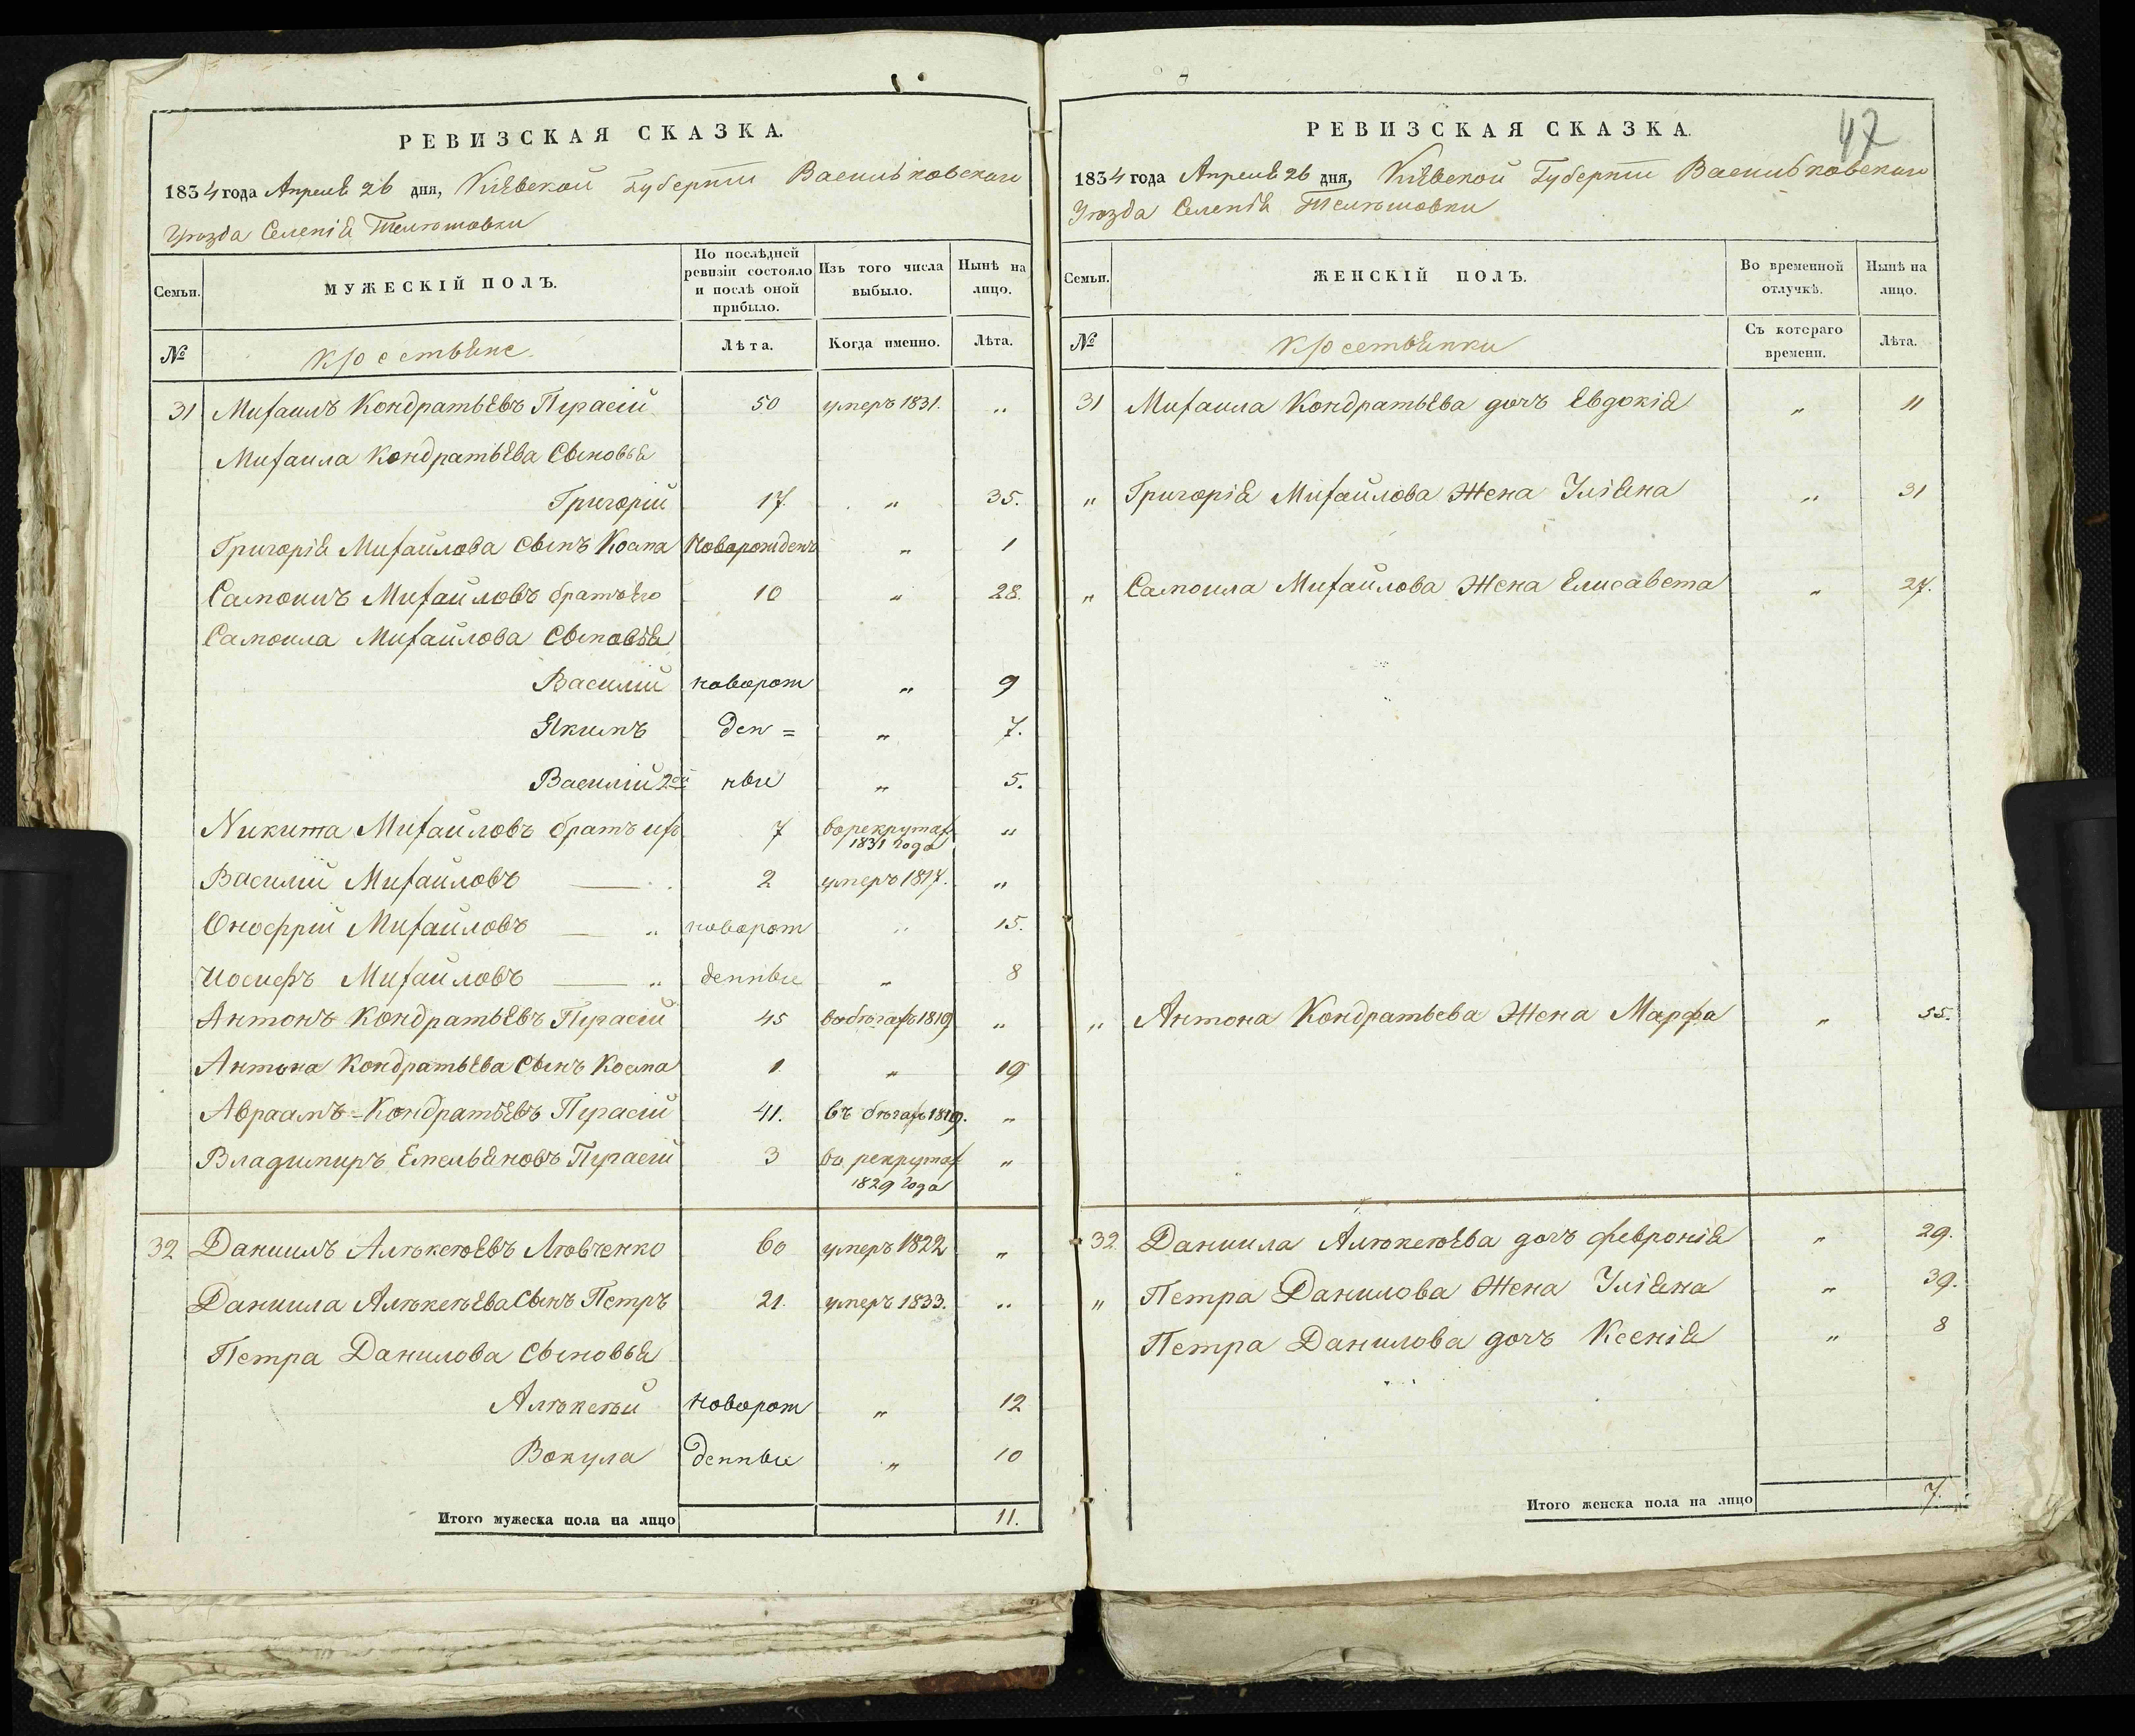 РЕВИЗСКАЯ СКАЗКА.
1834 года Апреля 26 дня, Кіевской Губерніи Васильковскаго
Уѣзда Селенія Телѣшовки
Семьи.
МУЖЕСКІЙ ПОЛЪ.
По послѣдней ревизіи состояло и послѣ оной прибыло.
Изъ того числа выбыло.
Нынѣ на лицо.
№
крестьяне
Лѣта.
Когда именно.
Лѣта.
31 Михаилъ Кондратьевъ Пугасій 50 умеръ 1831. „
Михаила Кондратьева Сыновья
Григорій 17. „ 35.
Григорія Михайлова Сынъ Косма Новорожденъ „ 1
Самоилъ Михайловъ братъ его 10 „ 28.
Самоила Михайлова Сыновья
Василій новорож „ 9
Якимъ ден = „ 7.
Василій 2ой ные „ 5.
Никита Михайловъ братъ ихъ 7 в рекрутах 1831 года „
Василій Михайловъ — 2 умеръ 1817. „
Онофрій Михайловъ — „ новорож „ 15.
Иосифъ Михайловъ — „ денные „ 8
Антонъ Кондратьевъ Пугасій 45 в бѣгахъ 1819 „
Антона Кондратьева Сынъ Косма 1. „ 19
Авраамъ Кондратьевъ Пугасій 41. въ бѣгахъ 1819. „
Владимиръ Емельяновъ Пугасій 3 в рекрутах 1829 года „
32 Даниилъ Алѣксѣевъ Любченко 60 умеръ 1822 „
Даниила Алѣксѣева Сынъ Петръ 21. умеръ 1833. „
Петра Данилова Сыновья
Алѣксѣй новорож „ 12
Вокула денные „ 10
Итого мужеска пола на лицо 11.
47
РЕВИЗСКАЯ СКАЗКА.
1834 года Апреля 26 дня, Кіевской Губерніи Васильковскаго
Уѣзда Селенія Телѣшовки
Семьи.
ЖЕНСКІЙ ПОЛЪ.
Во временной отлучкѣ.
Нынѣ на лицо.
№
крестьянки
Съ котораго времени.
Лѣта.
31 Михаила Кондратьева дочъ Евдокія „ 11
„ Григорія Михайлова Жена Уліяна „ 31
„ Самоила Михайлова Жена Елисавета „ 27.
„ Антона Кондратьева Жена Марфа „ 55.
32 Даниила Алѣксѣева дочъ Февронія „ 29.
„ Петра Данилова Жена Уліяна „ 39.
Петра Данилова дочъ Ксенія „ 8
Итого женска пола на лицо 7.